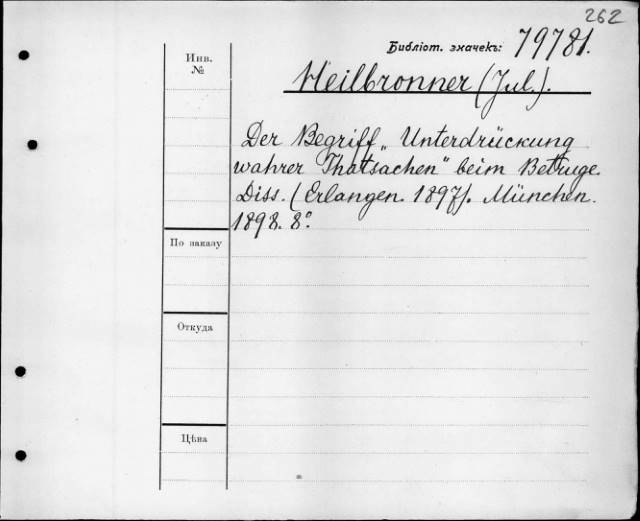 262
Библіот. значекъ: 79781.
Инв. №
Heilbronner (Jul.).
Der Begriff „Unterdrückung
wahrer Thatsachen" beim Betruge.
Diss. (Erlangen. 1897). München.
1898. 8°.
По заказу
Откуда
Цѣна